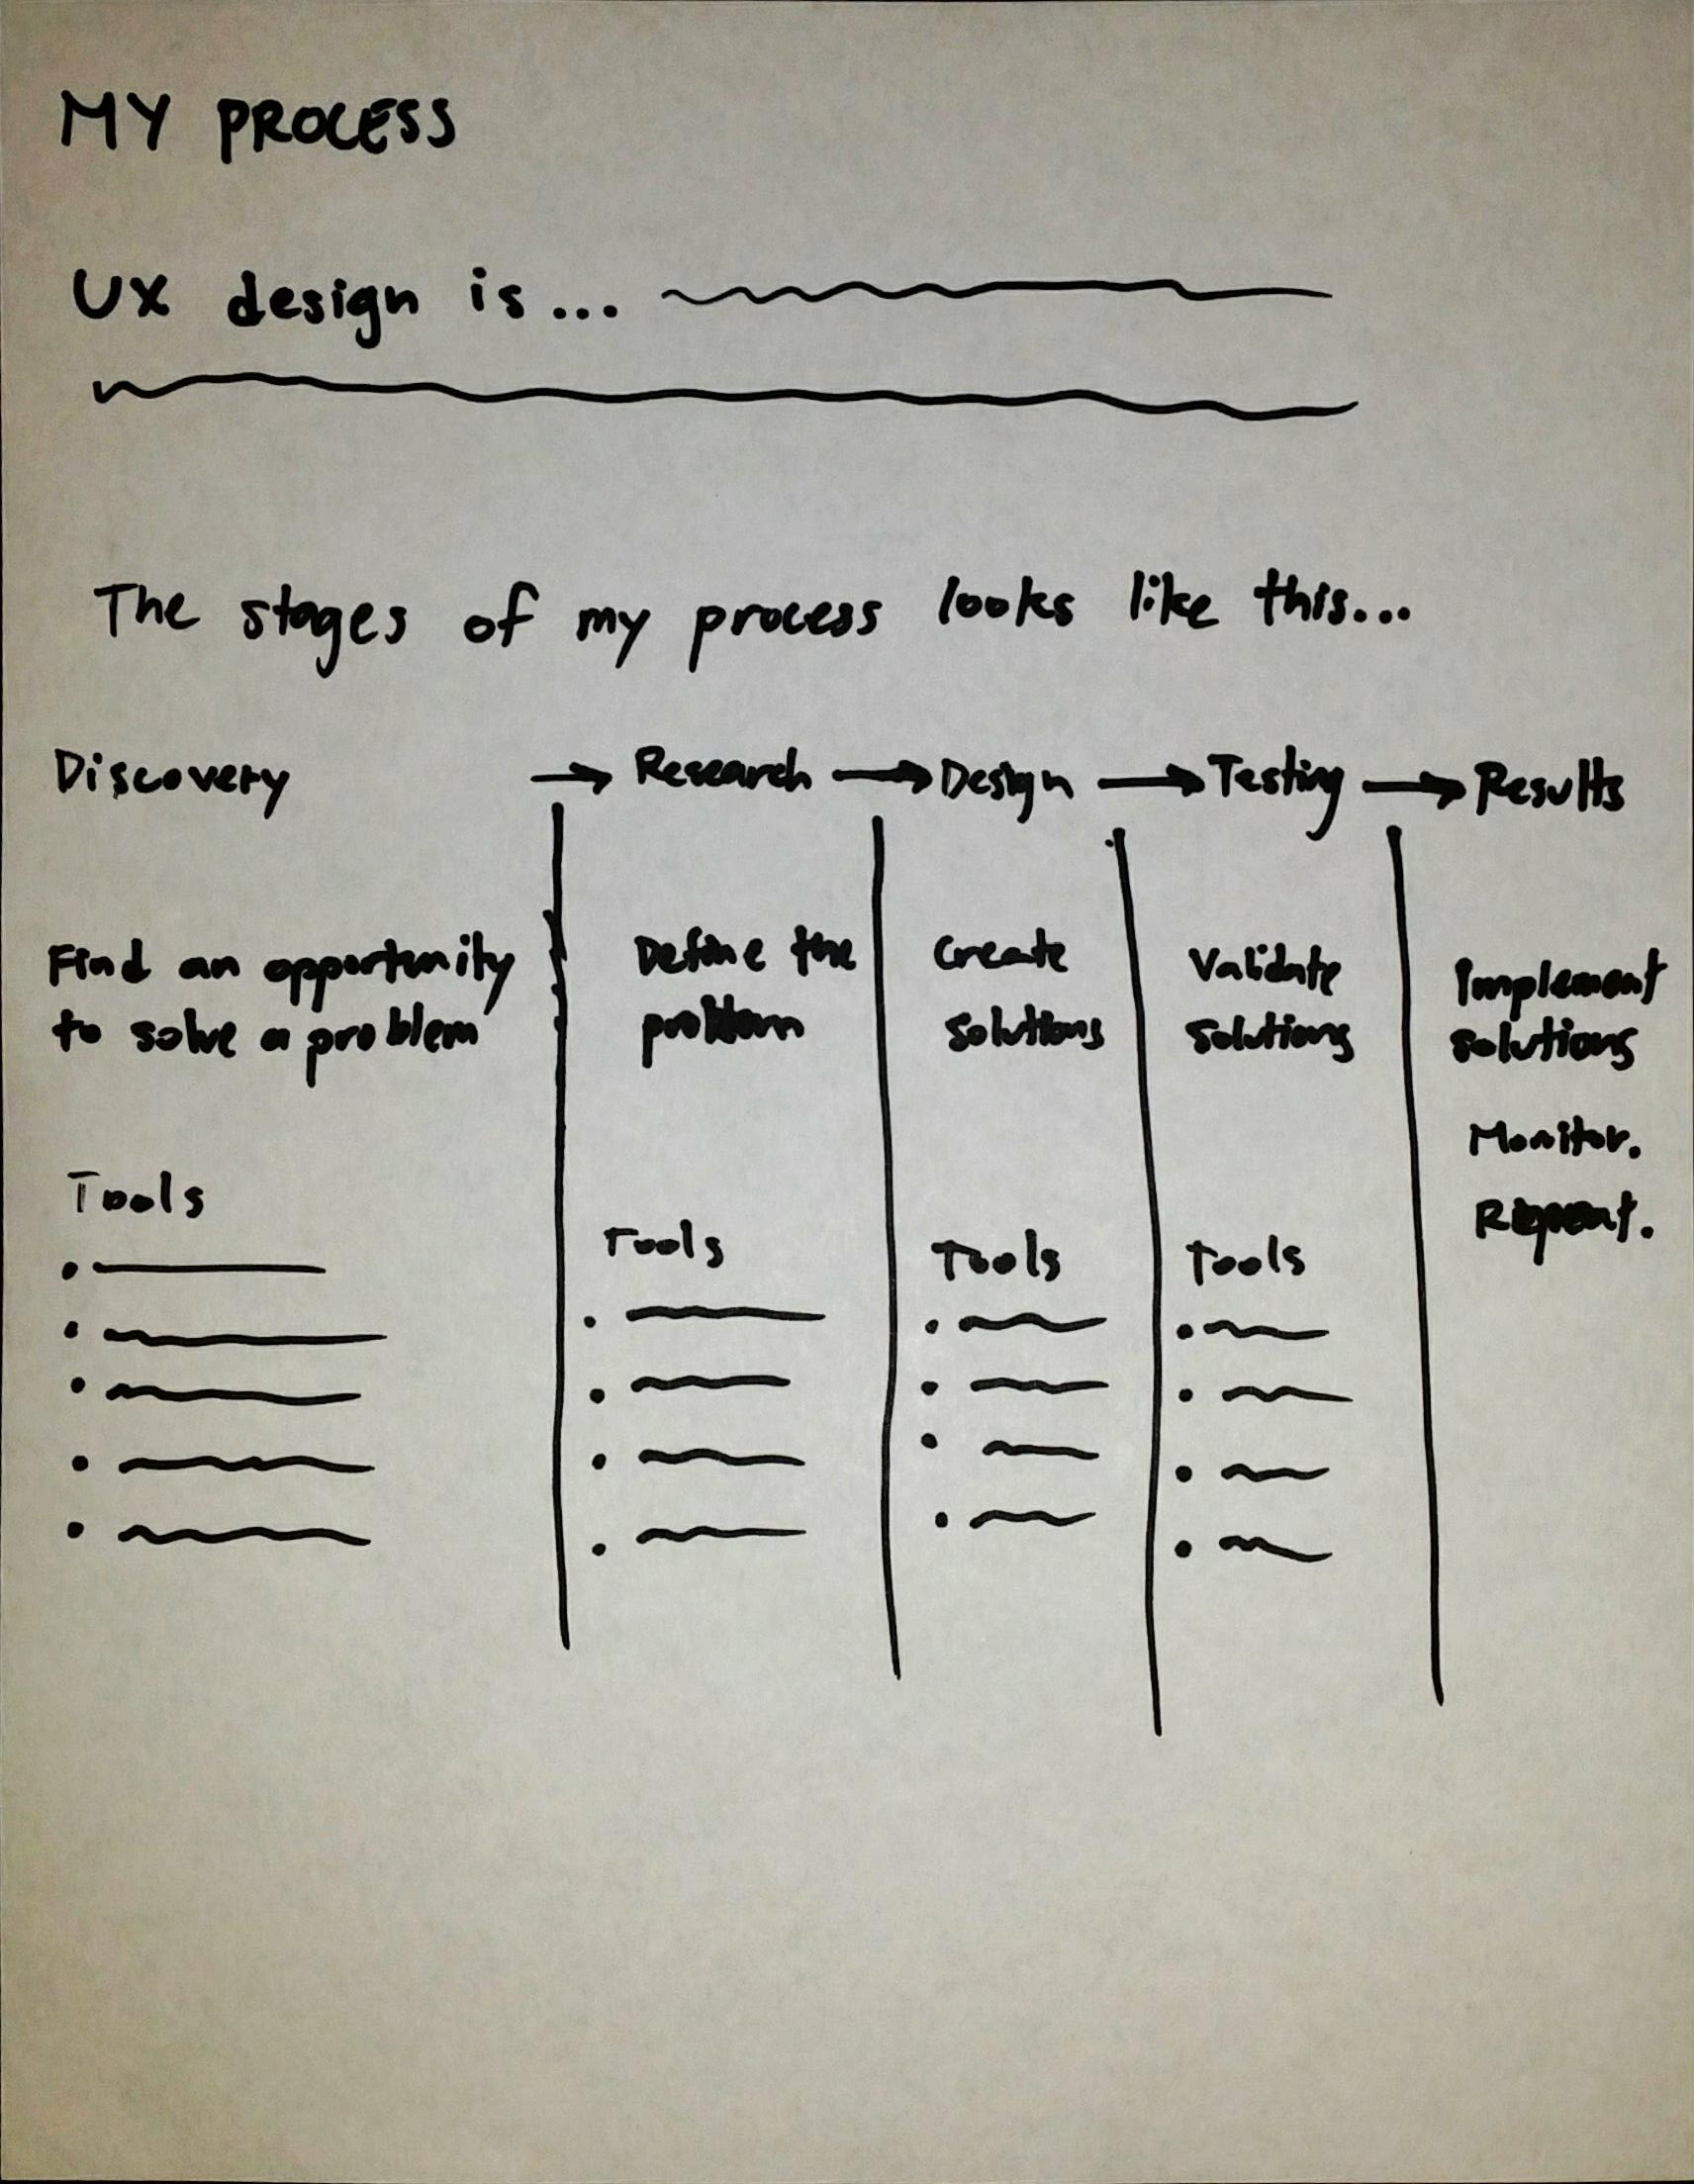 MY PROCESS
UX design is...
The stages of my process looks like this...
Discovery → Research → Design → Testing → Results
Find an opportunity
to solve a problem
Tools
Define the
problem
Tools
Create
solutions
Tools
Validate
solutions
Tools
Implement
solutions
Monitor.
Repeat.